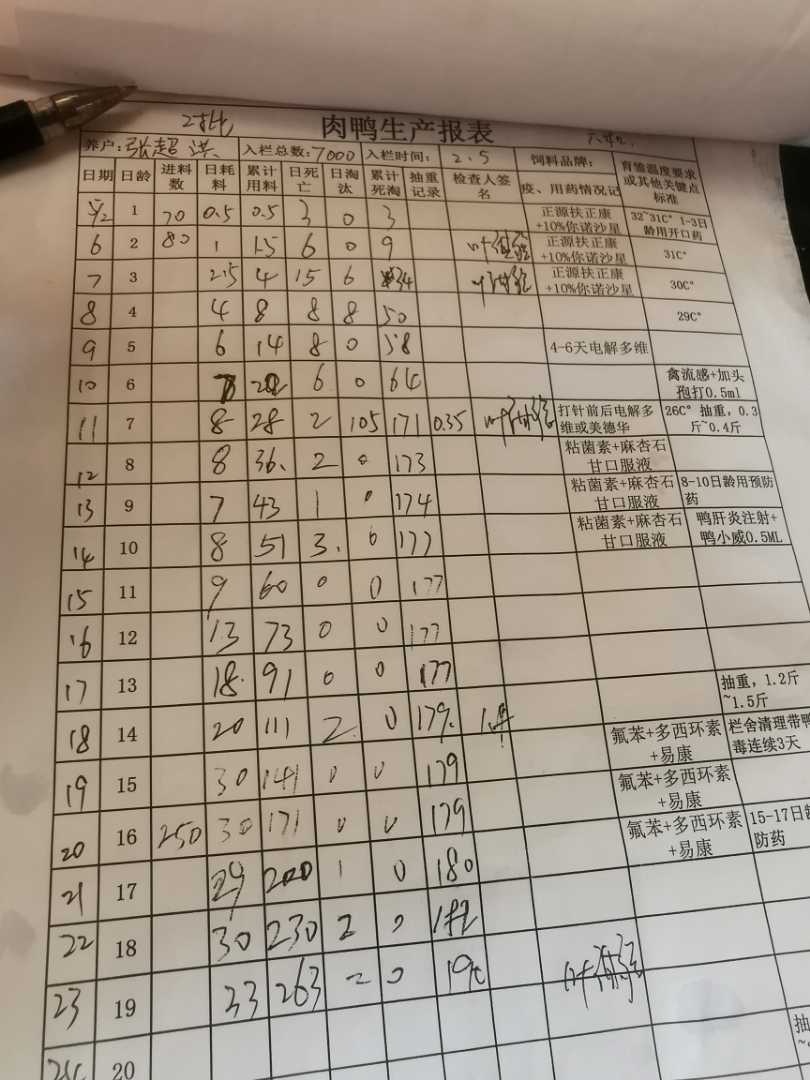 肉鸭生产报表
养户: 张超洪 入栏总数: 7000 入栏时间: 2.5 饲料品牌: 育雏温度要求或其他关键点标准
日期 日龄 进料数 日耗料 累计用料 日死亡 日淘汰 累计死淘 抽重记录 检查人签名 疫、用药情况记
5/2 1 70 0.5 0.5 3 0 3 正源扶正康+10%你诺沙星 32~31C° 1-3日龄用开口药
6 2 80 1 1.5 6 0 9 正源扶正康+10%你诺沙星 31C°
7 3 2.5 4 15 6 34 正源扶正康+10%你诺沙星 30C°
8 4 4 8 8 8 50 29C°
9 5 6 14 8 0 58 4-6天电解多维
10 6 6 0 64 禽流感+加头孢打0.5ml
11 7 8 28 2 105 171 0.35 打针前后电解多维或美德华 26C° 抽重，0.3斤~0.4斤
12 8 8 36. 2 0 173 粘菌素+麻杏石甘口服液
13 9 7 43 1 0 174 粘菌素+麻杏石甘口服液 8-10日龄用预防药
14 10 8 51 3. 0 177 粘菌素+麻杏石甘口服液 鸭肝炎注射+鸭小威0.5ML
15 11 9 60 0 0 177
16 12 13 73 0 0 177
17 13 18. 91 0 0 177 抽重，1.2斤~1.5斤
18 14 20 111 2. 0 179. 氟苯+多西环素+易康 栏舍清理带鸭毒连续3天
19 15 30 141 0 0 179 氟苯+多西环素+易康
20 16 250 30 171 0 0 179 氟苯+多西环素+易康 15-17日龄防药
21 17 29 200 1 0 180
22 18 30 230 2 0 182
23 19 33 263 0
20 抽